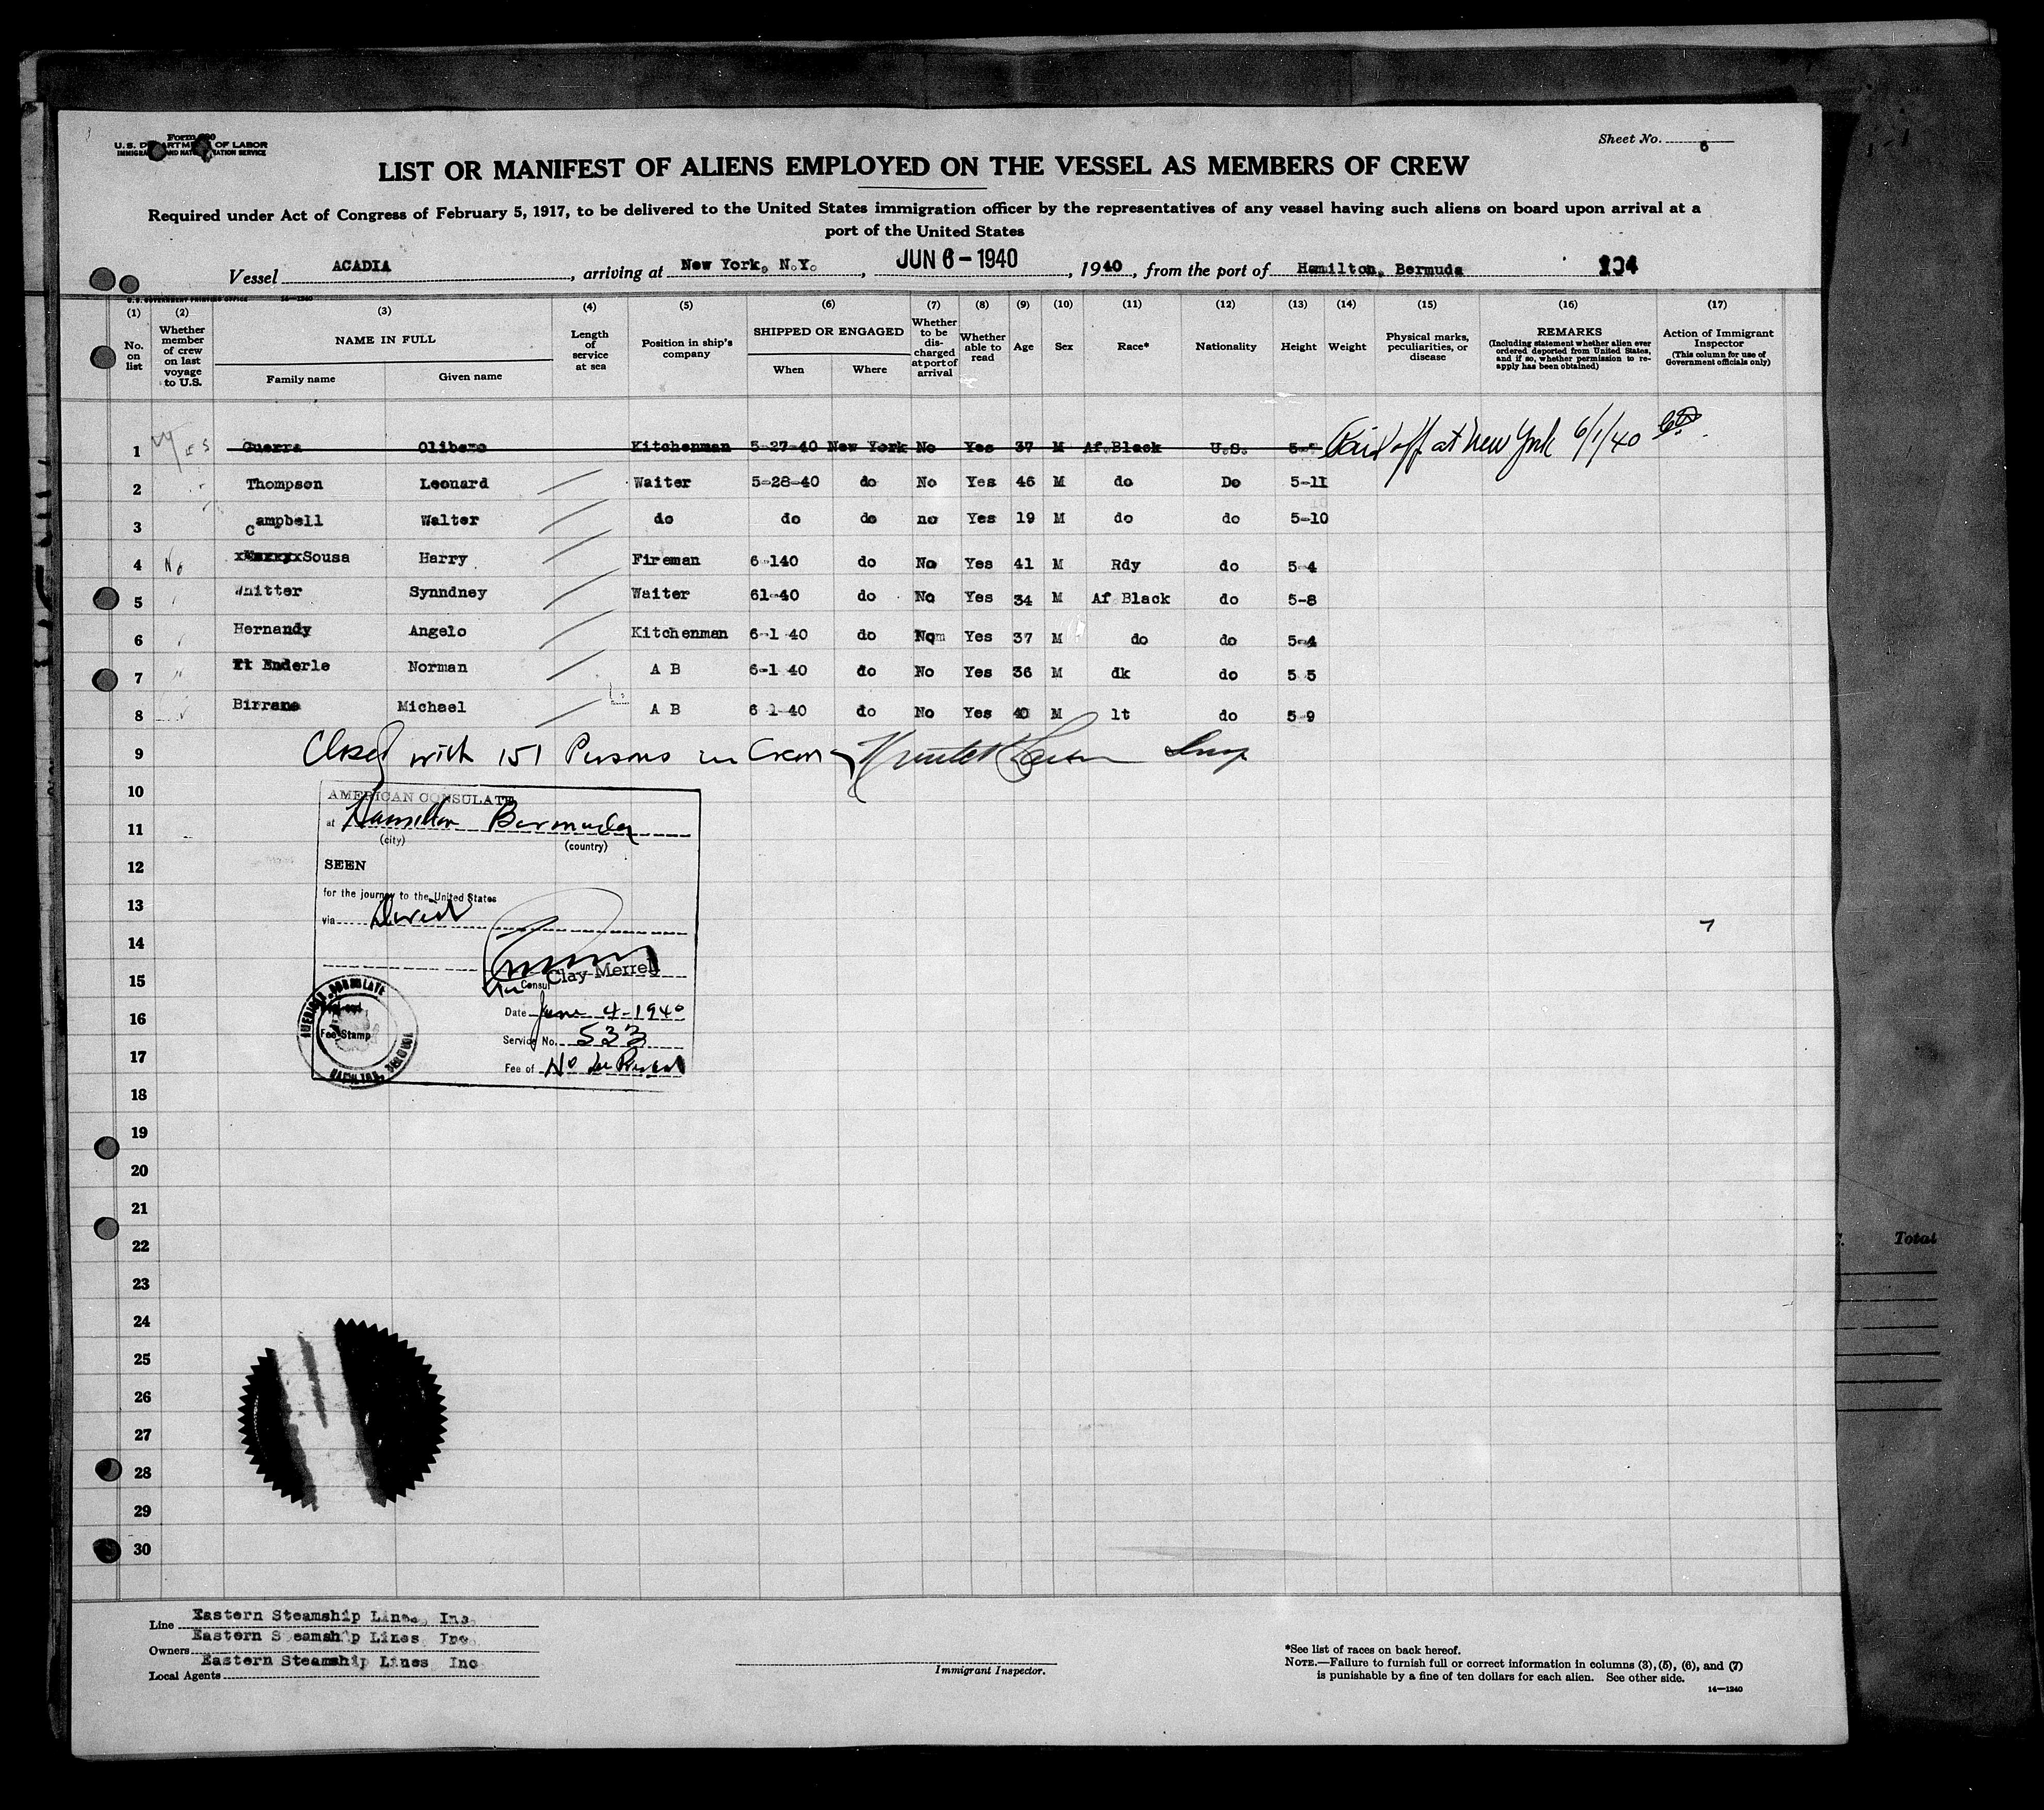 Form 680
U.S. DEPARTMENT OF LABOR
IMMIGRATION AND NATURALIZATION SERVICE
Sheet No. 6
LIST OR MANIFEST OF ALIENS EMPLOYED ON THE VESSEL AS MEMBERS OF CREW
Required under Act of Congress of February 5, 1917, to be delivered to the United States immigration officer by the representatives of any vessel having such aliens on board upon arrival at a
port of the United States
Vessel ACADIA, arriving at New York, N.Y., JUN 6-1940, 1940, from the port of Hamilton, Bermuda 104
U.S. GOVERNMENT PRINTING OFFICE 14-1240
(1) (2) (3) (4) (5) (6) (7) (8) (9) (10) (11) (12) (13) (14) (15) (16) (17)
No. on list
Whether member of crew on last voyage to U.S.
NAME IN FULL
Family name Given name
Length of service at sea
Position in ship's company
SHIPPED OR ENGAGED
When Where
Whether to be discharged at port of arrival
Whether able to read
Age Sex Race* Nationality Height Weight
Physical marks, peculiarities, or disease
REMARKS
(Including statement whether alien ever ordered deported from United States, and if so, whether permission to reapply has been obtained)
Action of Immigrant Inspector
(This column for use of Government officials only)
1 Yes Guerra Olibero Kitchenman 5-27-40 New York No Yes 37 M Af.Black U.S. Paid off at New York 6/1/40
2 Thompson Leonard Waiter 5-28-40 do No Yes 46 M do Do 5-11
3 Campbell Walter do do do no Yes 19 M do do 5-10
4 No Sousa Harry Fireman 6-140 do No Yes 41 M Rdy do 5-4
5 Whitter Synndney Waiter 61-40 do No Yes 34 M Af Black do 5-8
6 Hernandy Angelo Kitchenman 6-1 40 do No Yes 37 M do do 5-4
7 Enderle Norman A B 6-1 40 do No Yes 36 M dk do 5 5
8 Birrane Michael A B 6 1-40 do No Yes 40 M lt do 5-9
9 Closed with 151 Persons in Crew Insp
10
AMERICAN CONSULATE
11
at Hamilton Bermuda
(city) (country)
12
SEEN
for the journey to the United States
13
via Direct
7
14
Clay Merrell
15
Vice Consul
16
Date June 4-1940
Service No. 533
17
Fee of No fee Prescribed
AMERICAN CONSULATE
Fee Stamp
18
19
20
21
22
23
24
25
26
27
28
29
30
C. Total
Line Eastern Steamship Lines, Inc.
Owners Eastern Steamship Lines Inc
Local Agents Eastern Steamship Lines Inc
Immigrant Inspector.
*See list of races on back hereof.
NOTE.—Failure to furnish full or correct information in columns (3), (5), (6), and (7)
is punishable by a fine of ten dollars for each alien. See other side.
14—1240